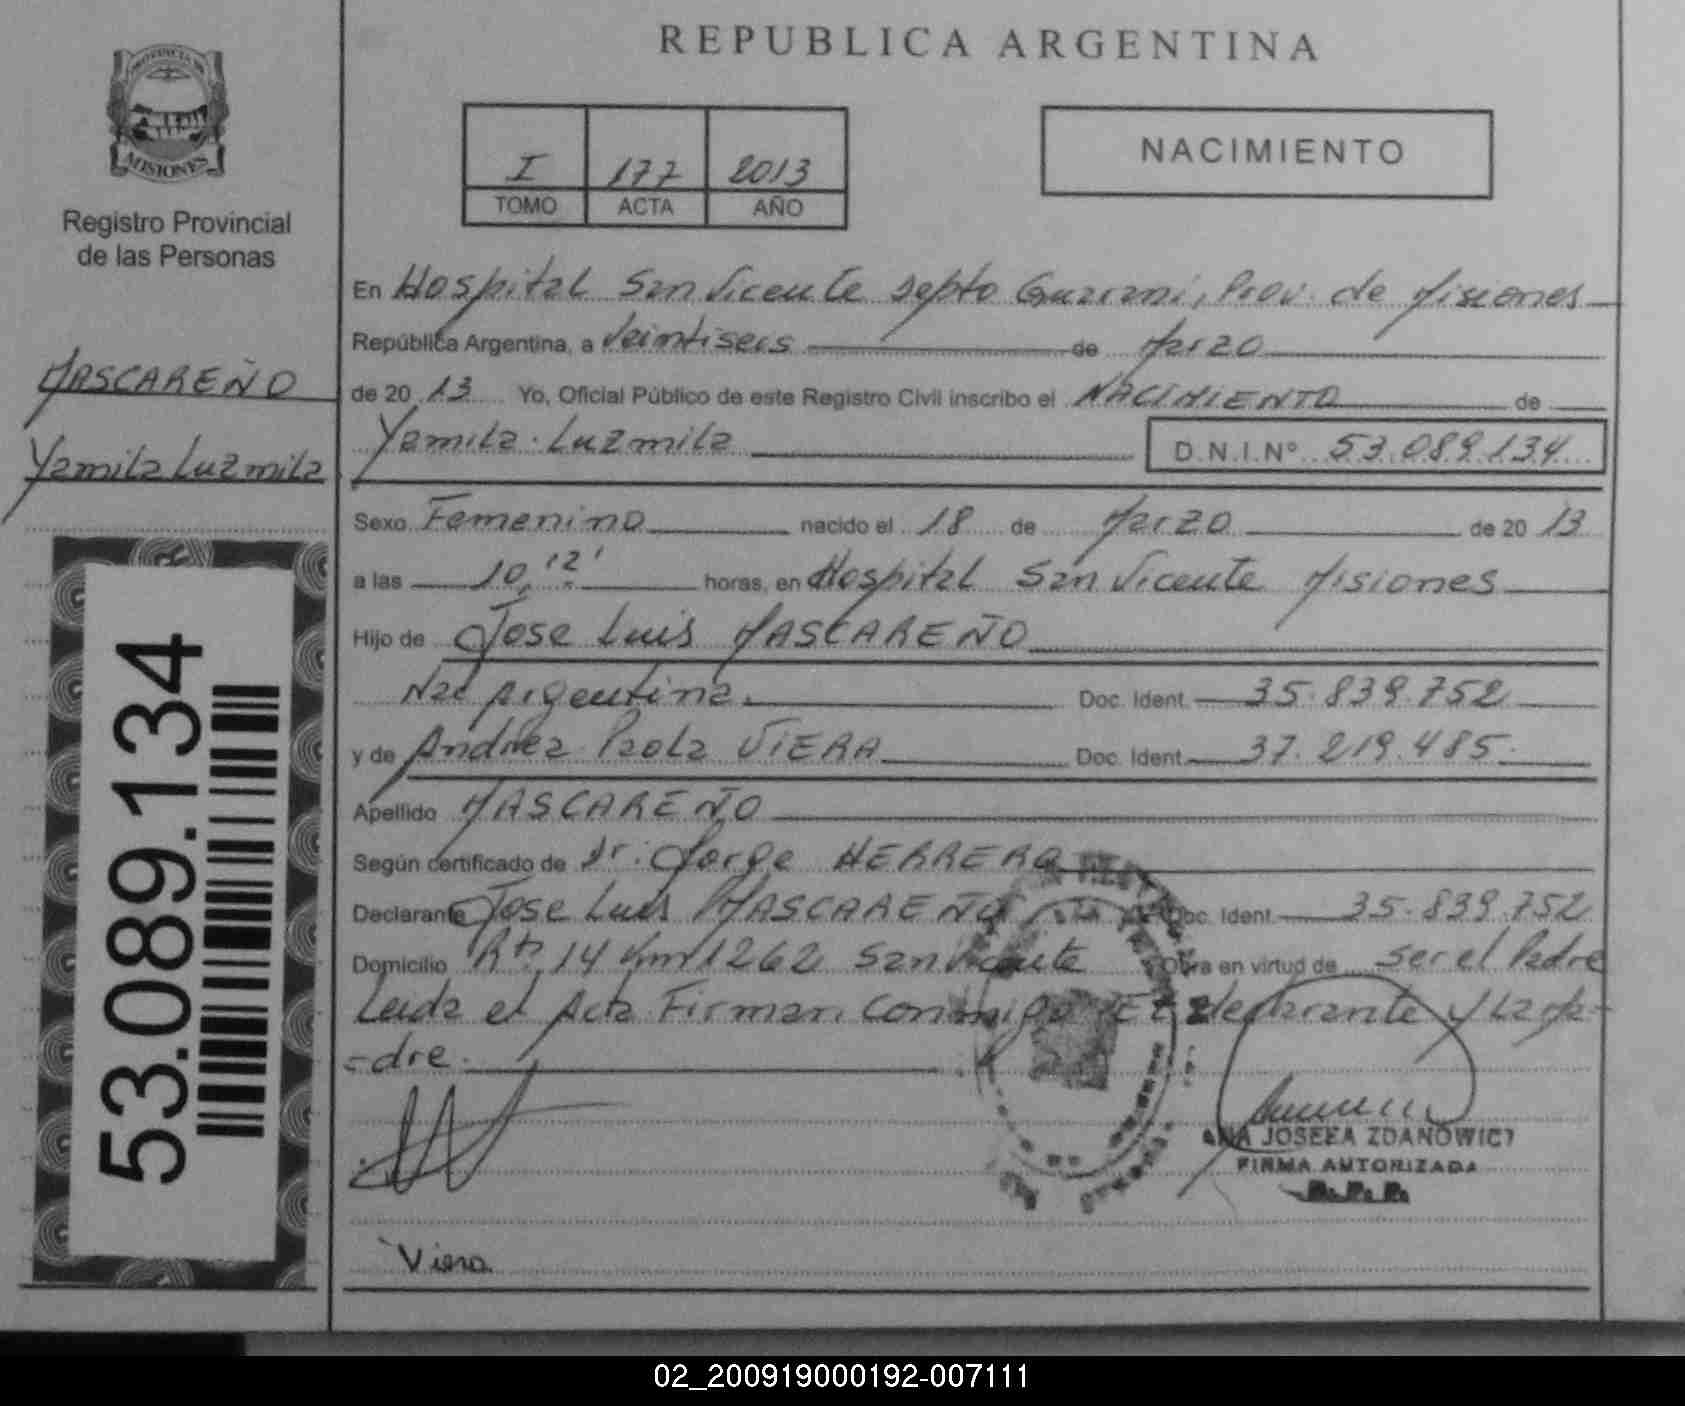 REPUBLICA ARGENTINA
PROVINCIA DE
MISIONES
Registro Provincial
de las Personas
MASCAREÑO
Yamila Luzmila
53.089.134
I 177 2013
TOMO ACTA AÑO
NACIMIENTO
En Hospital San Vicente Depto Guarani, Prov. de Misiones
República Argentina, a Veintiseis de Marzo
de 20 13 Yo, Oficial Público de este Registro Civil inscribo el NACIMIENTO de
Yamila Luzmila D.N.I.Nº 53.089.134
Sexo Femenino nacido el 18 de Marzo de 20 13
a las 10,12' horas, en Hospital San Vicente Misiones
Hijo de Jose Luis MASCAREÑO
Nac Argentina. Doc. Ident. 35.839.752
y de Andrea Paola VIERA Doc. Ident. 37.219.485.
Apellido MASCAREÑO
Según certificado de Dr. Jorge HERRERA
Declarante Jose Luis MASCAREÑO Doc. Ident. 35.839.752
Domicilio Rta 14 Km 1262 San Vicente Obra en virtud de ser el Padre
Leida el Acta Firman Conmigo El declarante y La Ma-
-dre.
ANA JOSEFA ZDANOWICZ
FIRMA AUTORIZADA
R.P.P.
Viera
02_200919000192-007111